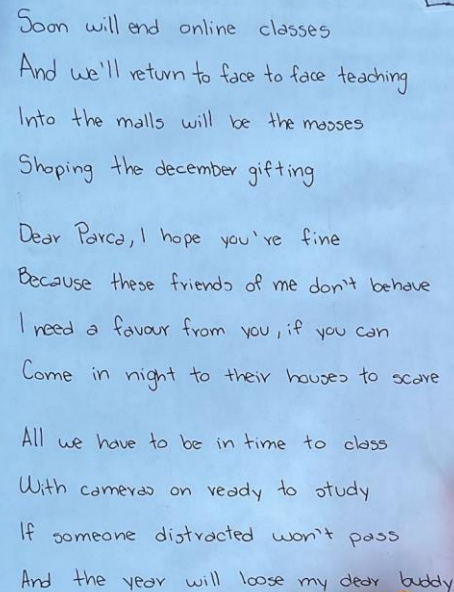 Soon will end online classes
And we'll return to face to face teaching
Into the malls will be the masses
Shoping the december gifting
Dear Parca, I hope you've fine
Because these friends of me don't behave
I need a favour from you, if you can
Come in night to their houses to scare
All we have to be in time to class
With cameras on ready to study
If someone distracted won't pass
And the year will loose my dear buddy